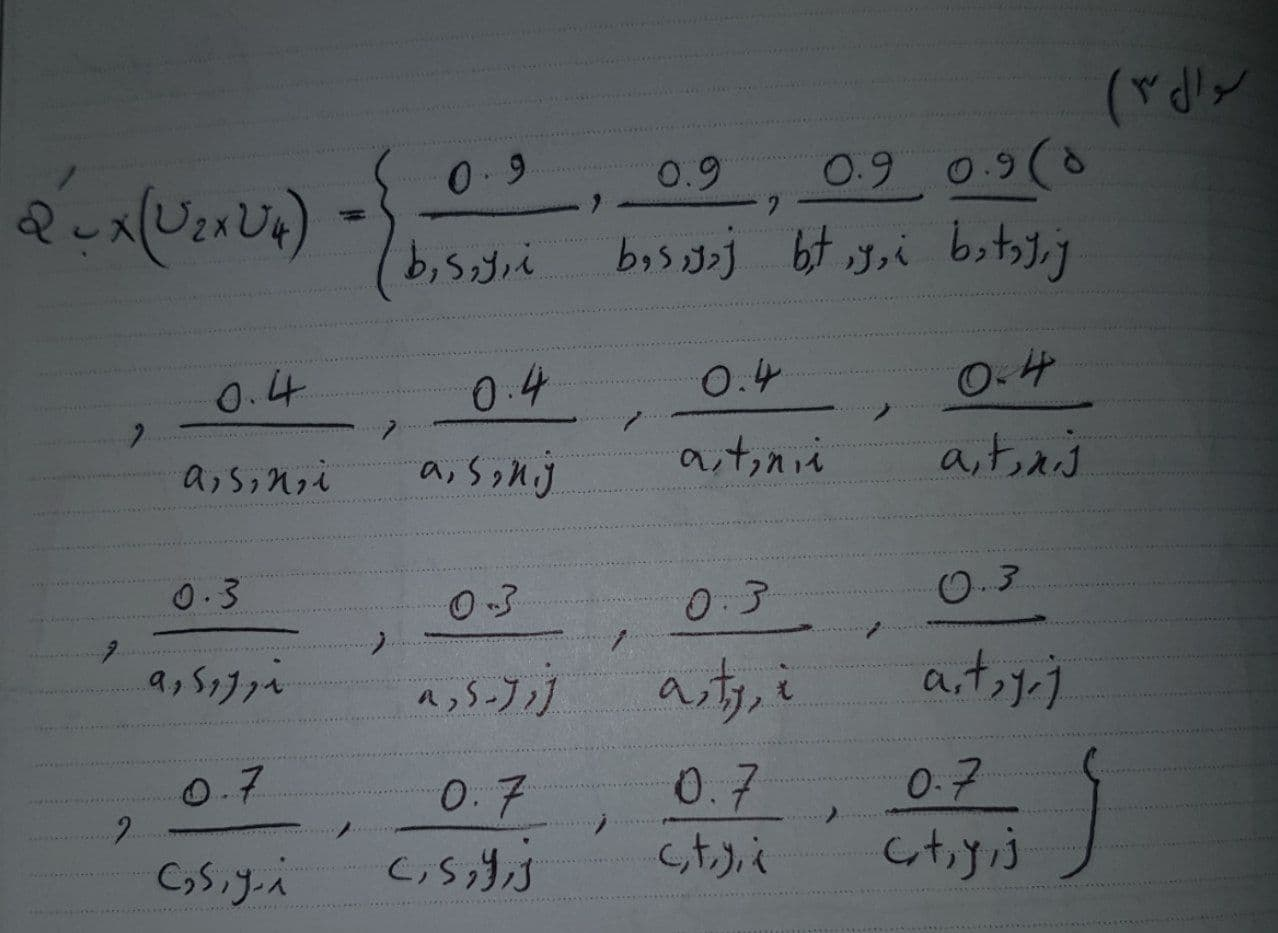 سوال ۳)
Q́ × (U2 × U4) = { 0.9/b,s,y,i , 0.9/b,s,y,j , 0.9/b,t,y,i 0.9/b,t,y,j (۵
, 0.4/a,s,x,i , 0.4/a,s,x,j , 0.4/a,t,x,i , 0.4/a,t,x,j
, 0.3/a,s,y,i , 0.3/a,s,y,j , 0.3/a,t,y,i , 0.3/a,t,y,j
, 0.7/c,s,y,i , 0.7/c,s,y,j , 0.7/c,t,y,i , 0.7/c,t,y,j }